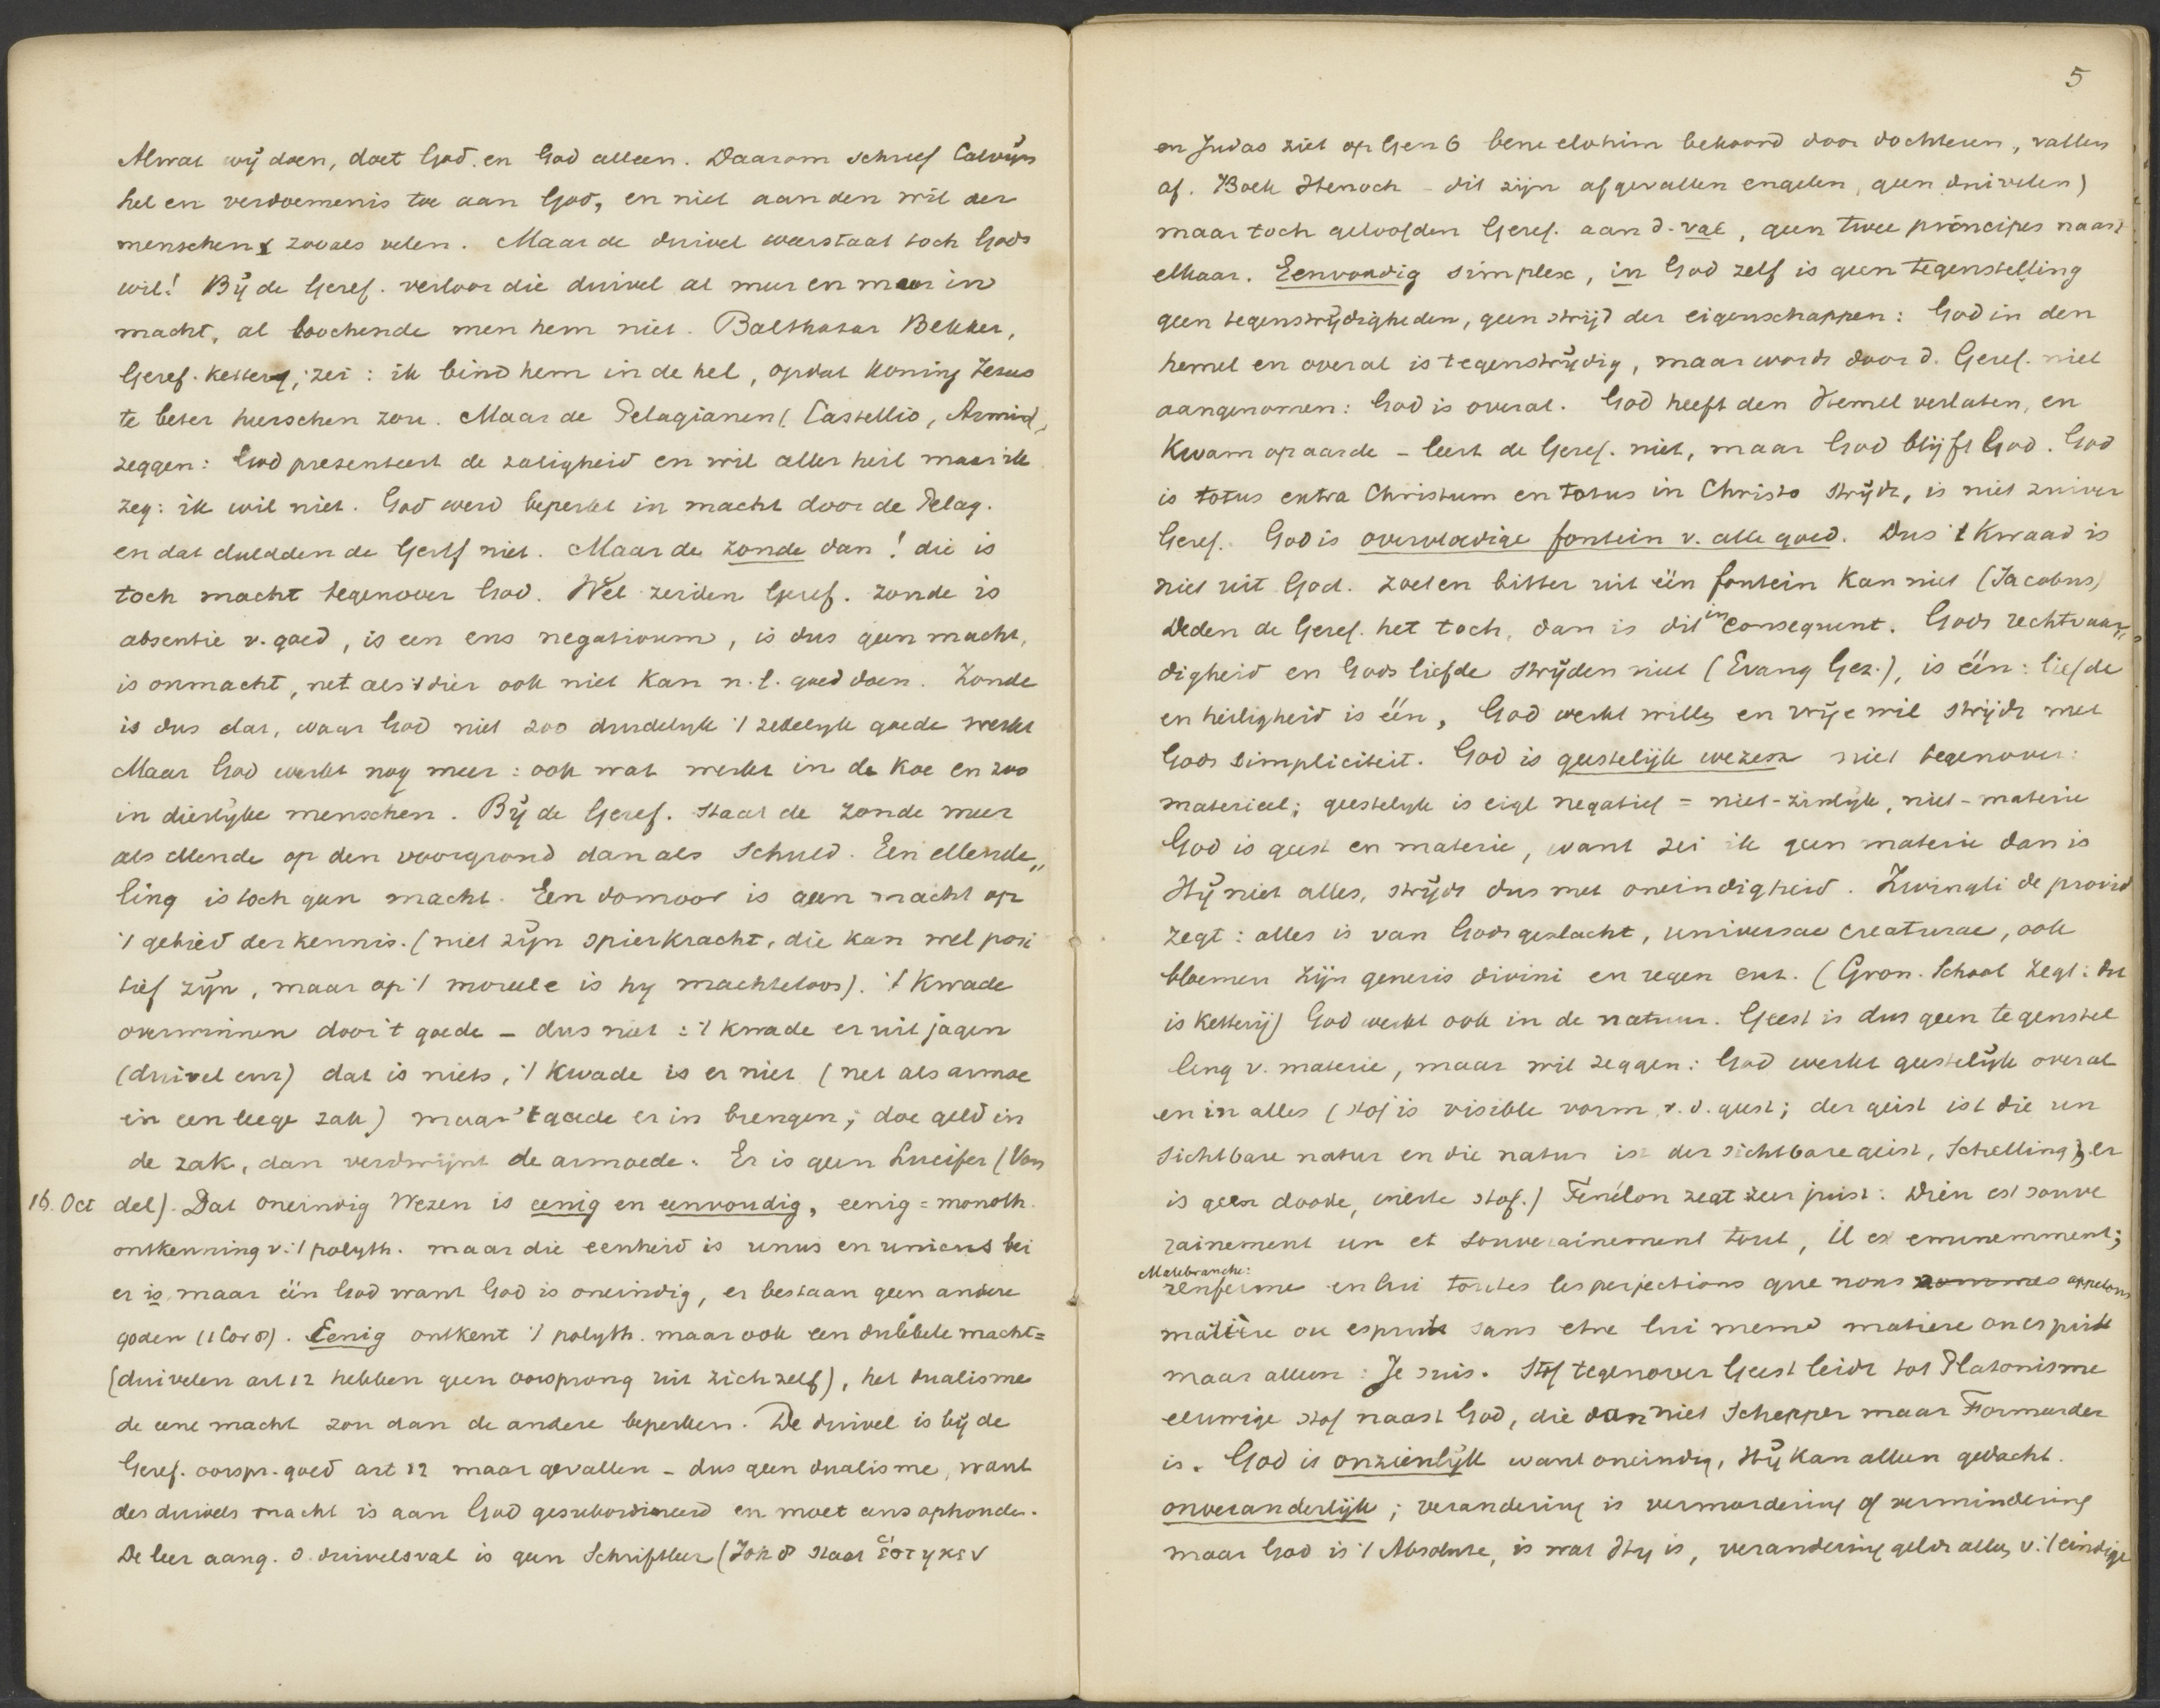 Alwat wij doen, doet God en God alleen. Daarom schreef Calvijn
hel en verdoemenis toe aan God, en niet aan den wil der
menschen zooals velen. Maar de duivel weerstaat toch Gods
wil! Bij de Geref. verloor die duivel al meer en meer in
macht, al loochende men hem niet. Balthasar Bekker,
Geref. ketter, zei: ik bind hem in de hel, opdat Koning Jezus
te beter heerschen zou. Maar de Pelagianen (Castellio, Armin.)
zeggen: God presenteert de zaligheid en wil aller heil maar ik
zeg: ik wil niet. God werd beperkt in macht door de Pelag.
en dat duldden de Geref niet. Maar de zonde dan! die is
toch macht tegenover God. Wel zeiden Geref. zonde is
absentie v. goed, is een ens negativum, is dus geen macht,
is onmacht, net als 't dier ook niet kan n.l. goed doen. Zonde
is dus dat, waar God niet zoo duidelijk 't zedelijk goede werkt
Maar God werkt nog meer: ook wat werkt in de koe en zoo
in dierlijke menschen. Bij de Geref. staat de zonde meer
als ellende op den voorgrond dan als schuld. Een ellende„
ling is toch geen macht. Een domoor is geen macht op
't gebied der kennis. (niet zijn spierkracht, die kan wel posi
tief zijn, maar op 't moreele is hij machteloos). 't Kwade
overwinnen door 't goede – dus niet: 't kwade er uit jagen
(duivel enz) dat is niets, 't Kwade is er niet (net als armoe
in een leege zak) maar 't goede er in brengen; doe geld in
de zak, dan verdwijnt de armoede. Er is geen Lucifer (Von
16. Oct del). Dat oneindig Wezen is eenig en eenvoudig, eenig = monoth.
ontkenning v. 't polyth. maar die eenheid is unus en unicus bei
er is maar één God want God is oneindig, er bestaan geen andere
goden (1 Cor 8). Eenig ontkent 't polyth. maar ook een dubbele macht=
(duivelen art 12 hebben geen oorsprong uit zichzelf), het dualisme
de eene macht zou dan de andere beperken. De duivel is bij de
Geref. oorspr. goed art 12 maar gevallen – dus geen dualisme, want
des duivels macht is aan God gesubordineerd en moet eens ophouden.
De leer aang. d. duivelsval is geen Schriftleer (Joh 8 staat ἕστηκεν
5
en Judas ziet op Gen 6 bene elohim bekoord door dochteren, vallen
af. Boek Henoch – dit zijn afgevallen engelen, geen duivelen)
maar toch geloofden Geref. aan d. val, geen twee principes naast
elkaar. Eenvoudig simplex, in God zelf is geen tegenstelling
geen tegenstrijdigheden, geen strijd der eigenschappen: God in den
hemel en overal is tegenstrijdig, maar wordt door d. Geref. niet
aangenomen: God is overal. God heeft den Hemel verlaten, en
Kwam op aarde – leert de Geref. niet, maar God blijft God. God
is totus extra Christum en totus in Christo strijdt, is niet zuiver
Geref. God is overvloedige fontein v. alle goed. Dus 't Kwaad is
niet uit God. zoet en bitter uit één fontein kan niet (Jacobus)
Deden de Geref. het toch, dan is dit inconsequent. Gods rechtvaar„
digheid en Gods liefde strijden niet (Evang Gez.), is één: liefde
en heiligheid is één, God werkt willen en vrije wil strijdt met
Gods simpliciteit. God is geestelijk wezen niet tegenover:
materieel; geestelijk is eigl negatief = niet-zinlijk, niet-materie
God is geest en materie, want zei ik geen materie dan is
Hij niet alles, strijdt dus met oneindigheid. Zwingli de provid
zegt: alles is van Gods geslacht, universae creaturae, ook
bloemen zijn generis divini en regen enz. (Gron. School zegt: dit
is ketterij) God werkt ook in de natuur. Geest is dus geen tegenstel
ling v. materie, maar wil zeggen: God werkt geestelijk overal
en in alles (stof is visible vorm v. d. geest; der geist ist die un
sichtbare natur en die natur ist der sichtbare geist, Schelling), er
is geen doode, inerte stof.) Fenélon zegt zeer juist: Dieu est souve
rainement un et souverainement tout, il est eminemment;
Malebranche:
renferme en lui toutes les perfections que nous nommes appelons
matière ou esprit sans etre lui meme matiere ou esprit
maar alleen: Je suis. Stof tegenover Geest leidt tot Platonisme
eeuwige stof naast God, die dan niet Schepper maar Formeerder
is. God is onzienlijk want oneindig, Hij kan alleen gedacht.
onveranderlijk; verandering is vermeerdering of vermindering
maar God is 't Absolute, is wat Hij is, verandering geldt alles v. 't eindige